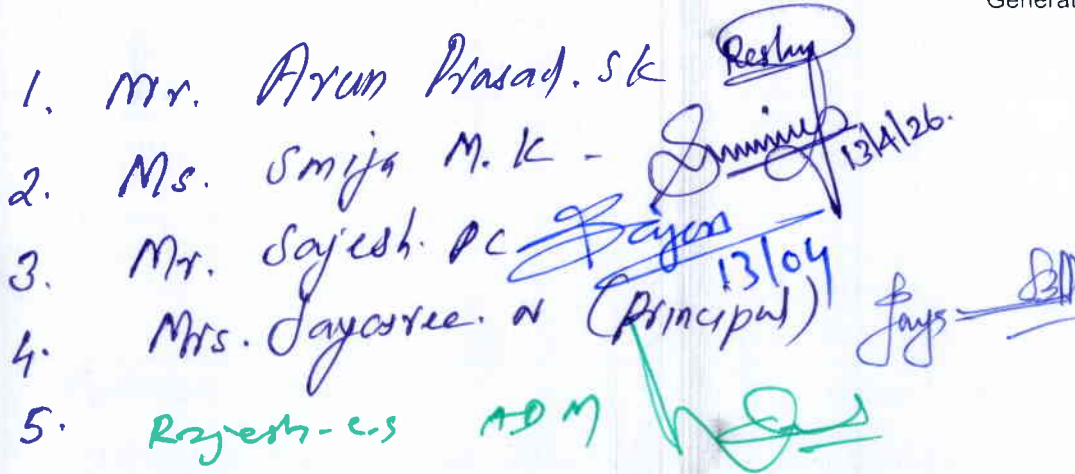 General
1. Mr. Arun Prasad. SK
2. Ms. Smija M.K - 13/4/26.
3. Mr. Sajesh. PC 13/04
4. Mrs. Jayasree. N (Principal)
5. Rajesh-C.S ADM